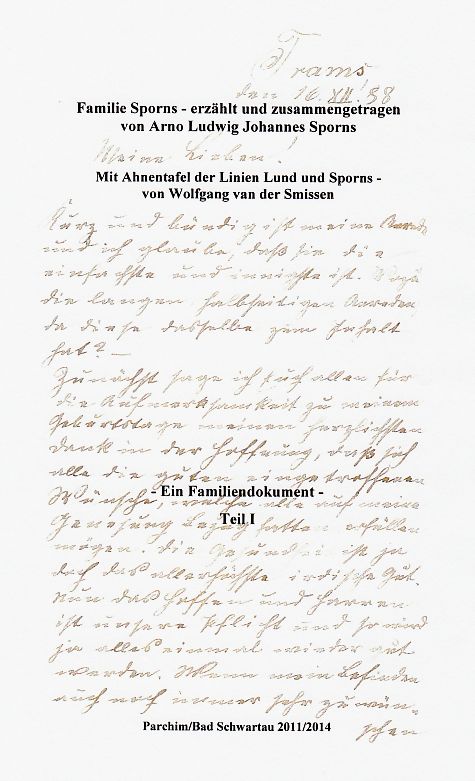 Trams,
den 16. XII. 38
Familie Sporns - erzählt und zusammengetragen
von Arno Ludwig Johannes Sporns
Meine Lieben!
Mit Ahnentafel der Linien Lund und Sporns -
von Wolfgang van der Smissen
Kurz und bündig ist meine Anrede
und ich glaube, daß sie die
einfachste und innigste ist. Wozu
die langen halbseitigen Anreden,
da diese dasselbe zum Inhalt
hat? —
Zunächst sage ich Euch allen für
die Aufmerksamkeit zu meinem
Geburtstage meinen herzlichsten
Dank in der Hoffnung, daß sich
alle die guten eingetroffenen
- Ein Familiendokument -
Wünsche, welche alle auf meine
Teil I
Genesung Bezug hatten erfüllen
mögen. Die Gesundheit ist ja
doch das allerhöchste irdische Gut.
Nun das Hoffen und Harren
ist unsere Pflicht und so wird
ja alles einmal wieder gut
werden. Wenn mein Befinden
auch noch immer sehr zu wün-
schen
Parchim/Bad Schwartau 2011/2014